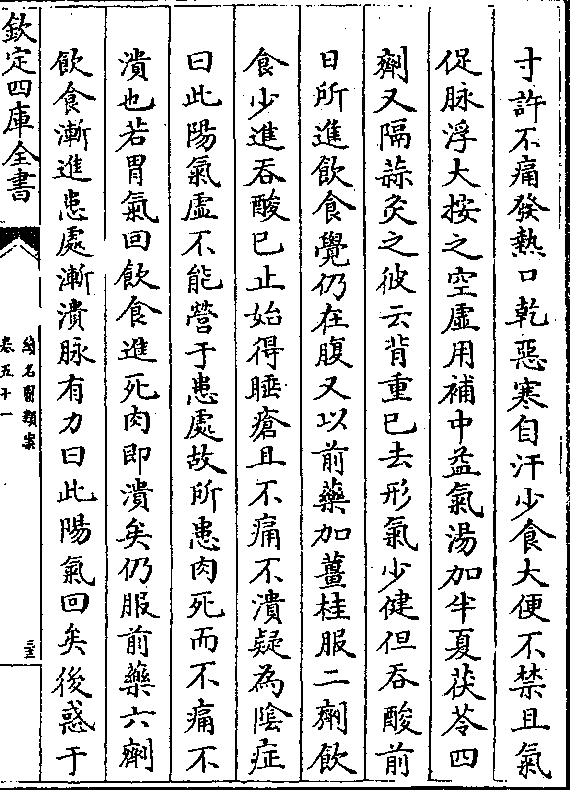 寸許不痛發熱口乾惡寒自汗少食大便不禁且氣
促脉浮大按之空虛用補中益氣湯加半夏茯苓四
劑又隔蒜灸之彼云背重已去形氣少健但吞酸前
日所進飲食覺仍在腹又以前藥加薑桂服二劑飲
食少進吞酸已止始得睡瘡且不痛不潰疑為陰症
曰此陽氣虛不能營于患處故所患肉死而不痛不
潰也若胃氣回飲食進死肉即潰矣仍服前藥六劑
飲食漸進患處漸潰脉有力曰此陽氣回矣後惑于
欽定四庫全書
續名醫類案
卷五十一